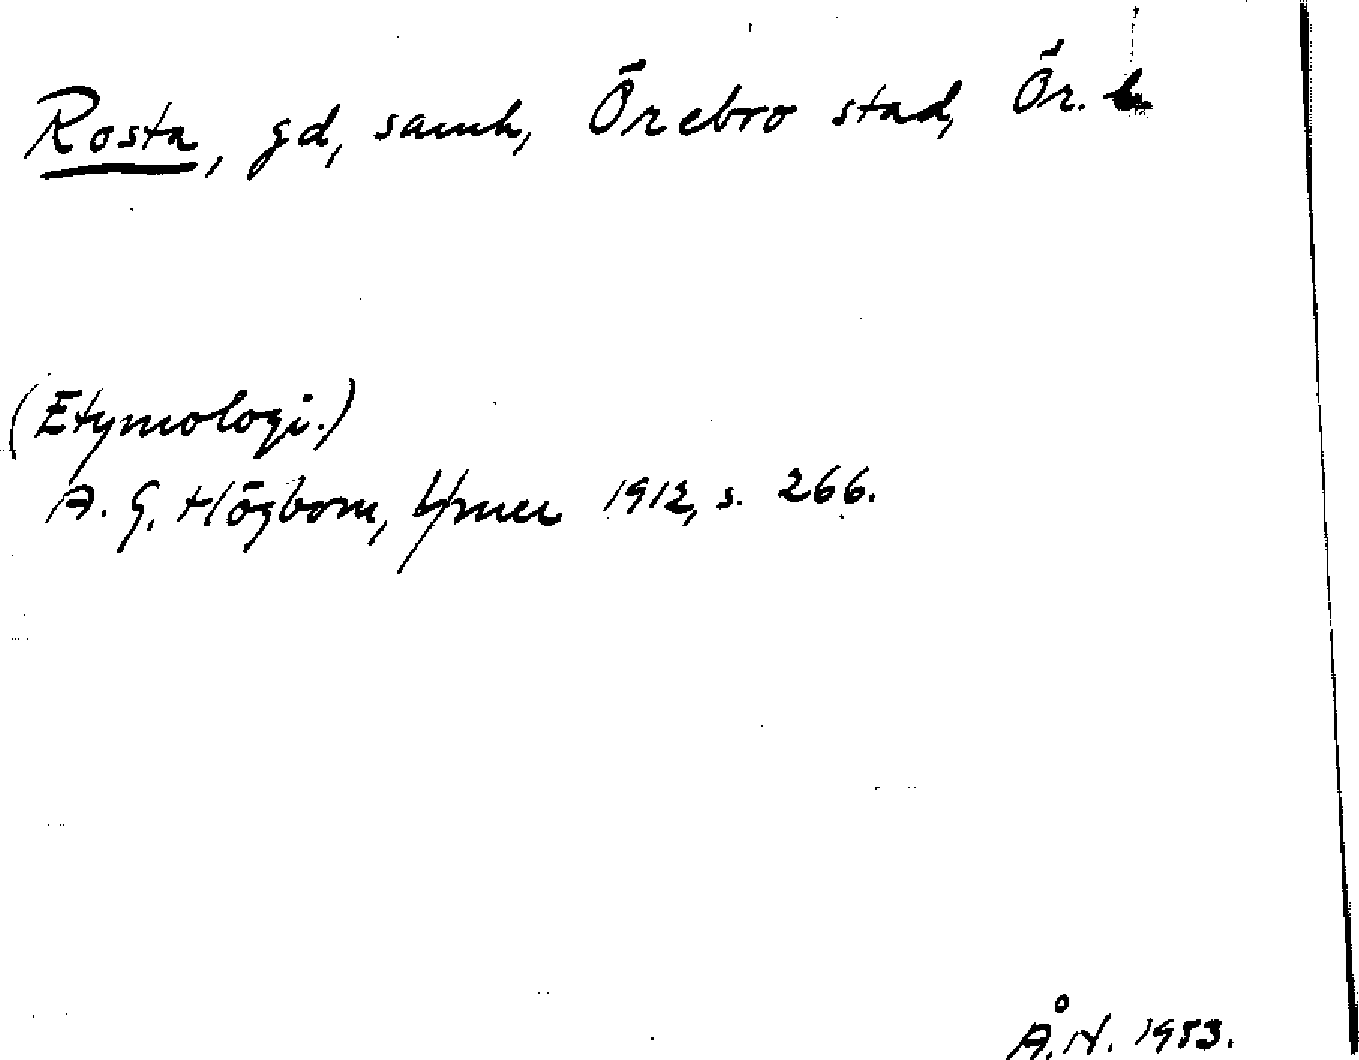 Rosta, gd, samh, Örebro stad, Ör. l.
(Etymologi.)
A. G. Högbom, Ymer 1912, s. 266.
Å. N. 1953.